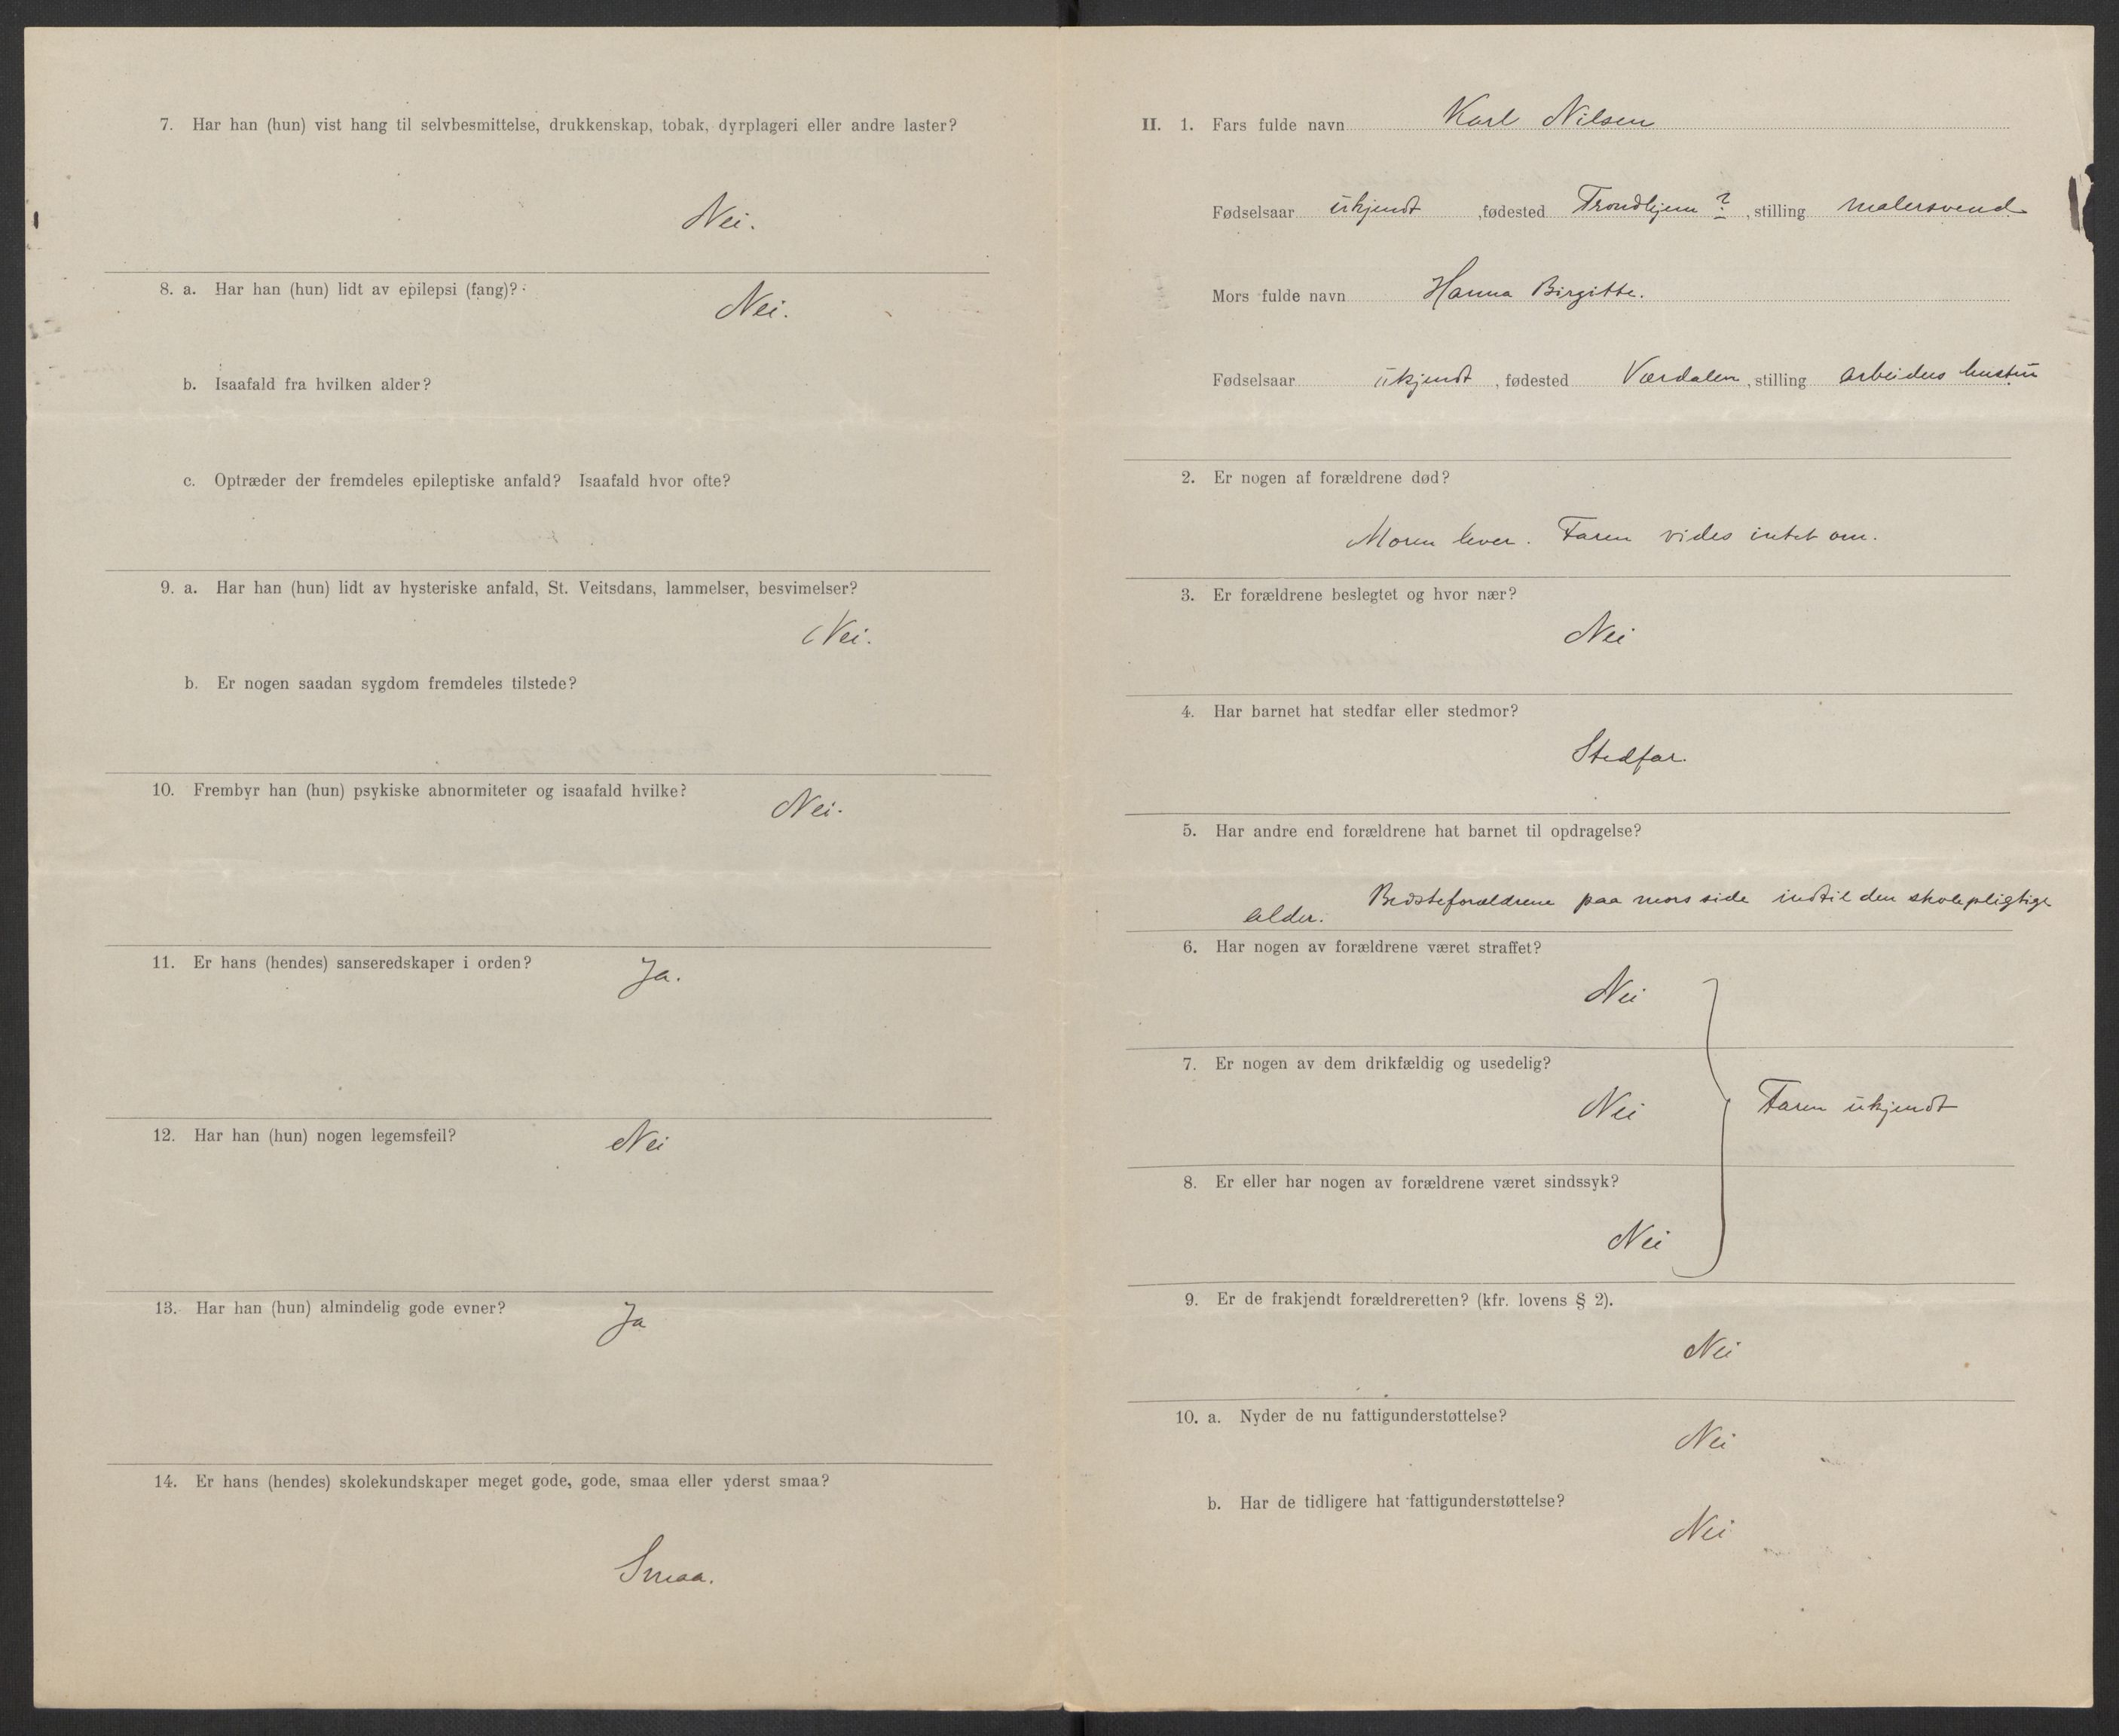 7. Har han (hun) vist hang til selvbesmittelse, drukkenskap, tobak, dyrplageri eller andre laster?
Nei.
8. a. Har han (hun) lidt av epilepsi (fang)?
Nei.
b. Isaafald fra hvilken alder?
c. Optræder der fremdeles epileptiske anfald? Isaafald hvor ofte?
9. a. Har han (hun) lidt av hysteriske anfald, St. Veitsdans, lammelser, besvimelser?
Nei.
b. Er nogen saadan sygdom fremdeles tilstede?
10. Frembyr han (hun) psykiske abnormiteter og isaafald hvilke?
Nei.
11. Er hans (hendes) sanseredskaper i orden? Ja.
12. Har han (hun) nogen legemsfeil? Nei
13. Har han (hun) almindelig gode evner? Ja
14. Er hans (hendes) skolekundskaper meget gode, gode, smaa eller yderst smaa?
Smaa.
II. 1. Fars fulde navn Karl Nilsen
Fødselsaar ukjendt, fødested Trondhjem ?, stilling malersvend
Mors fulde navn Hanna Birgitte.
Fødselsaar ukjendt, fødested Værdalen, stilling arbeiders hustru
2. Er nogen af forældrene død?
Moren lever. Faren vides intet om.
3. Er forældrene beslegtet og hvor nær?
Nei
4. Har barnet hat stedfar eller stedmor?
Stedfar.
5. Har andre end forældrene hat barnet til opdragelse?
Bedsteforældrene paa mors side indtil den skolepligtige
alder.
6. Har nogen av forældrene været straffet?
Nei
7. Er nogen av dem drikfældig og usedelig?
Nei
Faren ukjendt
8. Er eller har nogen av forældrene været sindssyk?
Nei
9. Er de frakjendt forældreretten? (kfr. lovens § 2).
Nei
10. a. Nyder de nu fattigunderstøttelse?
Nei
b. Har de tidligere hat fattigunderstøttelse?
Nei